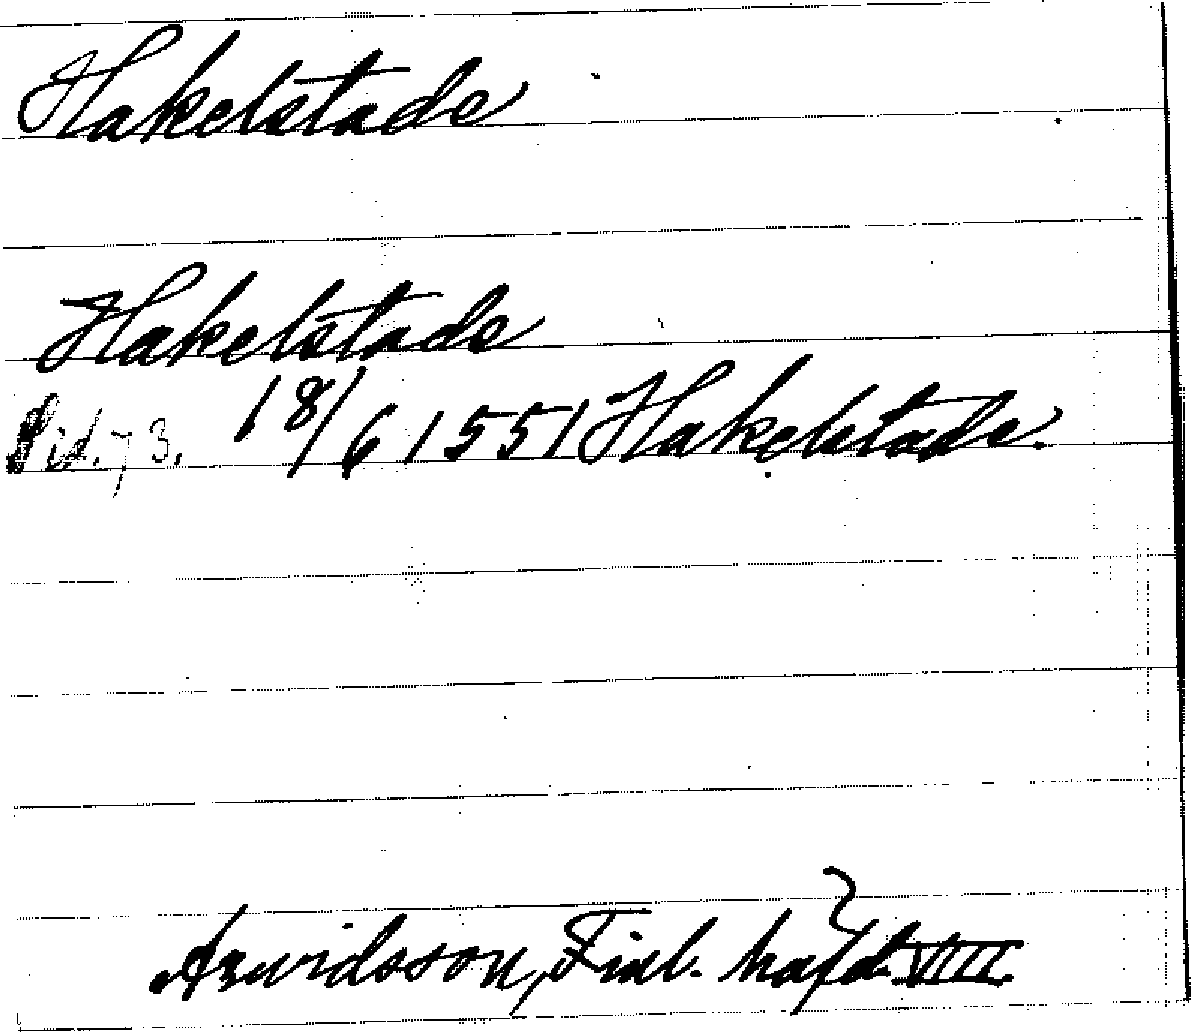 Hakelstade
Hakelstade
Sid. 73. 18/6 1551 Hakelstade.
Arwidsson, Finl. häfd. VIII.